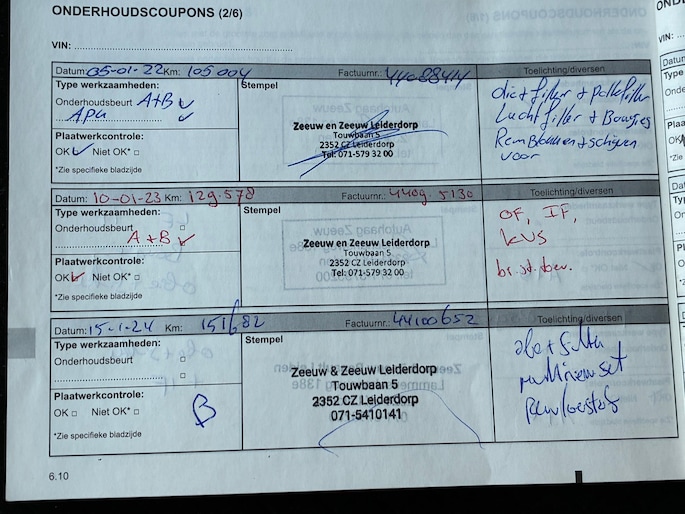 ONDERHOUDSCOUPONS (2/6)
VIN:
Datum: 05-01-22 Km: 105004 Factuurnr.: 44088414 Toelichting/diversen
Type werkzaamheden:
Onderhoudsbeurt A+B
APK
Plaatwerkcontrole:
OK Niet OK*
*Zie specifieke bladzijde
Stempel
Zeeuw en Zeeuw Leiderdorp
Touwbaan 5
2352 CZ Leiderdorp
Tel: 071-579 32 00
olie+filter + pollenfilter
Luchtfilter + Bougies
Remblokken + schijven
voor
Datum: 10-01-23 Km: 129.578 Factuurnr.: 4409 5130 Toelichting/diversen
Type werkzaamheden:
Onderhoudsbeurt
A+B
Plaatwerkcontrole:
OK Niet OK*
*Zie specifieke bladzijde
Stempel
Zeeuw en Zeeuw Leiderdorp
Touwbaan 5
2352 CZ Leiderdorp
Tel: 071-579 32 00
OF, IF,
KVS
Datum: 15-1-24 Km: 151682 Factuurnr.: 44100652 Toelichting/diversen
Type werkzaamheden:
Onderhoudsbeurt
Plaatwerkcontrole:
OK Niet OK*
*Zie specifieke bladzijde
B
Stempel
Zeeuw & Zeeuw Leiderdorp
Touwbaan 5
2352 CZ Leiderdorp
071-5410141
6.10
VIN: